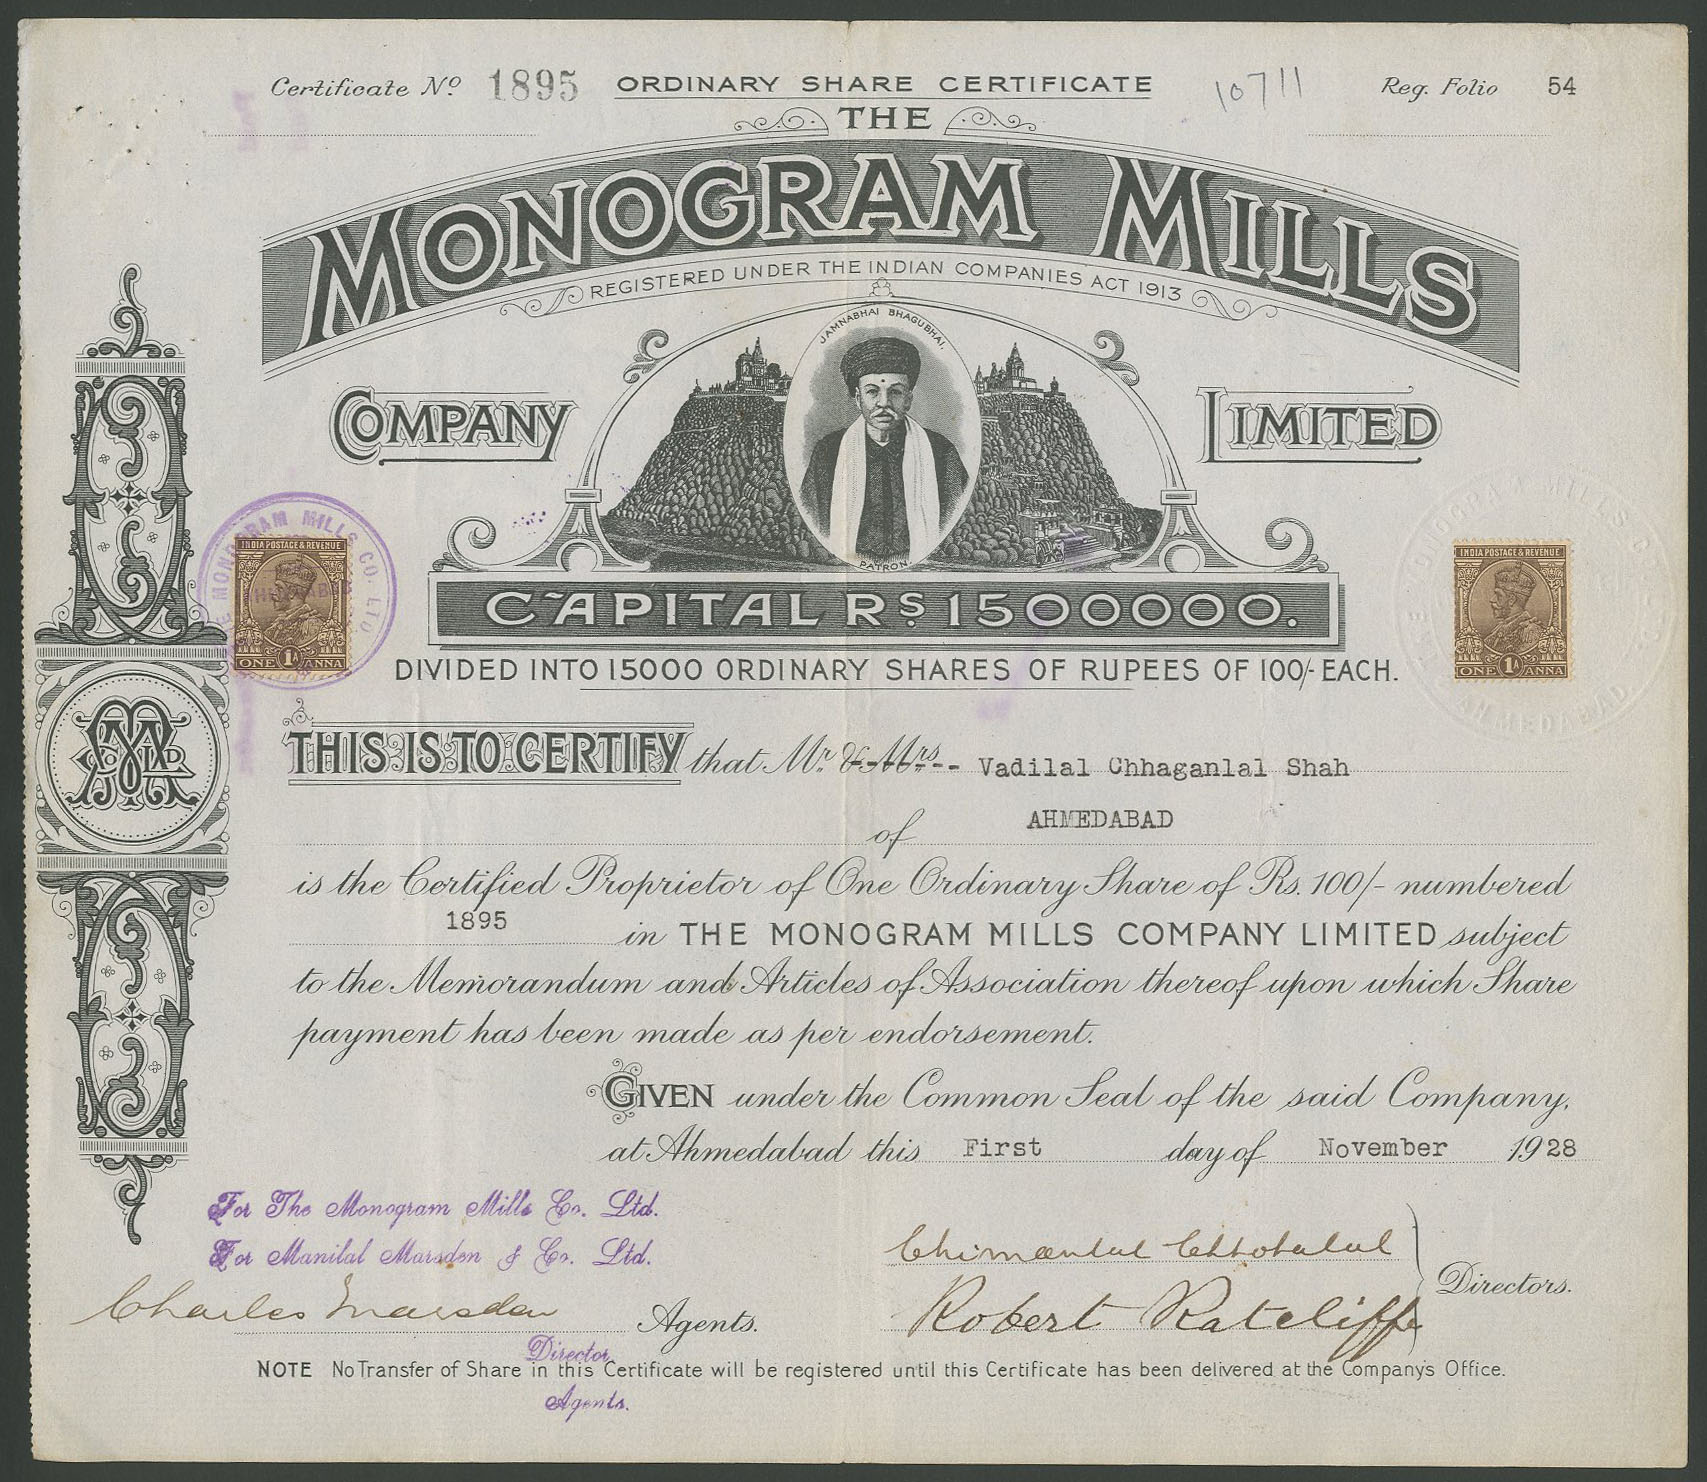 Certificate No. 1895 ORDINARY SHARE CERTIFICATE 10711 Reg. Folio 54
THE
MONOGRAM MILLS
REGISTERED UNDER THE INDIAN COMPANIES ACT 1913
COMPANY LIMITED
JAMNABHAI BHAGUBHAI,
PATRON
THE MONOGRAM MILLS CO. LTD
AHMEDABAD
INDIA POSTAGE & REVENUE
ONE 1A ANNA
MONOGRAM MILLS CO
AHMEDABAD
INDIA POSTAGE & REVENUE
ONE 1A ANNA
CAPITAL RS. 1500000.
DIVIDED INTO 15000 ORDINARY SHARES OF RUPEES OF 100/- EACH.
THIS IS TO CERTIFY that Mr. & Mrs -- Vadilal Chhaganlal Shah
of AHMEDABAD
is the Certified Proprietor of One Ordinary Share of Rs. 100/- numbered
1895 in THE MONOGRAM MILLS COMPANY LIMITED subject
to the Memorandum and Articles of Association thereof upon which Share
payment has been made as per endorsement.
GIVEN under the Common Seal of the said Company,
at Ahmedabad this First day of November 1928
For The Monogram Mills Co. Ltd.
For Manilal Marsden & Co. Ltd.
Charles Marsden Agents.
Director
Agents.
Chimanlal Chhotalal
Robert Ratcliffe
Directors.
NOTE No Transfer of Share in this Certificate will be registered until this Certificate has been delivered at the Company's Office.